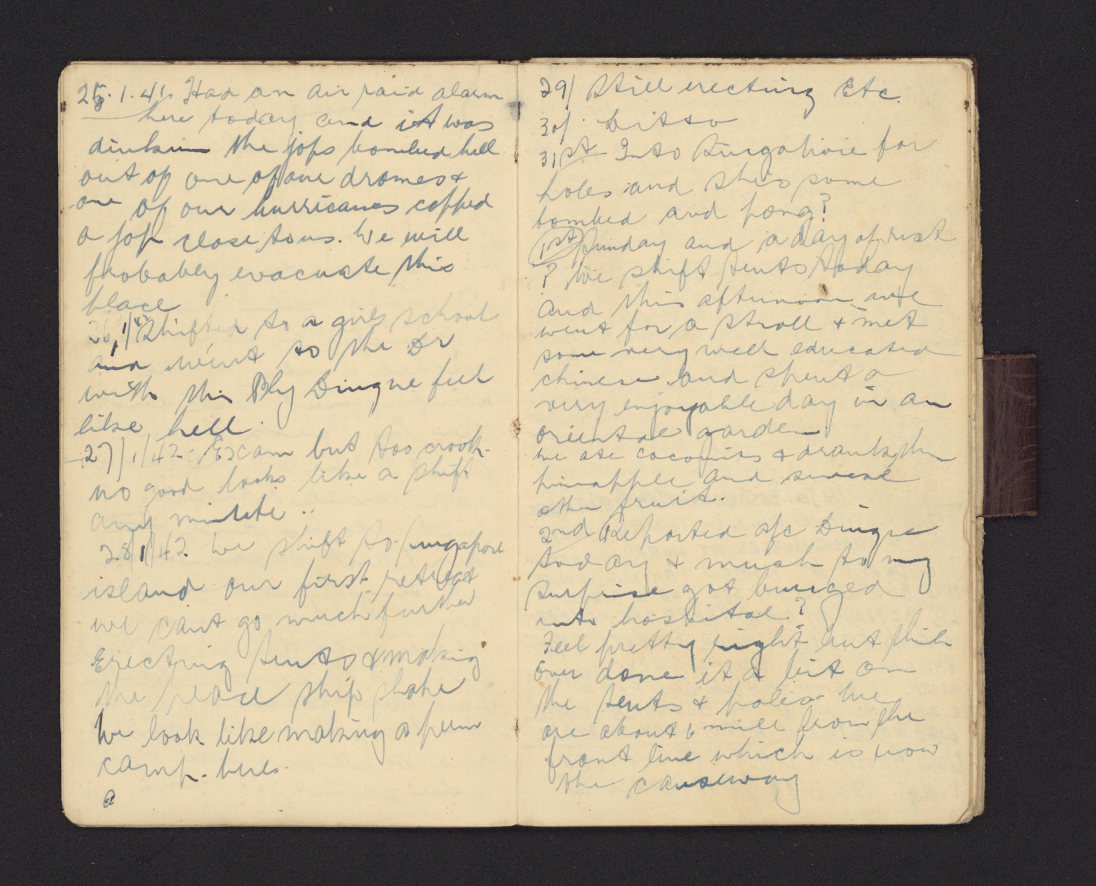 25.1.41 Had an air raid alarm
here today and it was
dinkum the japs bombed hell
out of one of our dromes &
one of our hurricanes copped
a jap close to us. We will
probably evacuate this
place
26/1/42 Shifted to a girls school
and went to the Dr
with this Bly Dingue feel
like hell.
27/1/42. Exam but too crook
no good looks like a shift
any minute ..
28/1/42 We shift to Singapore
island our first retreat
we cant go much further
Erecting tents & making
the place ship shape
We look like making a perm
camp. here.
29/ Still erecting Etc.
30/. Ditto
31st Into Singapore for
poles and she's some
bombed and pong?
1st Sunday and a day of rest
? We shift tents today
and this afternoon we
went for a stroll & met
some very well educated
chinese and spent a
very enjoyable day in an
oriental garden
we ate coconuts & drank them
pineapple and several
other fruit.
2nd Reported a/c Dingue
today & much to my
surprise got bunged
into hospital?
Feel pretty right but think
over done it a bit on
the tents & poles We
are about mile from the
front line which is now
the causeway